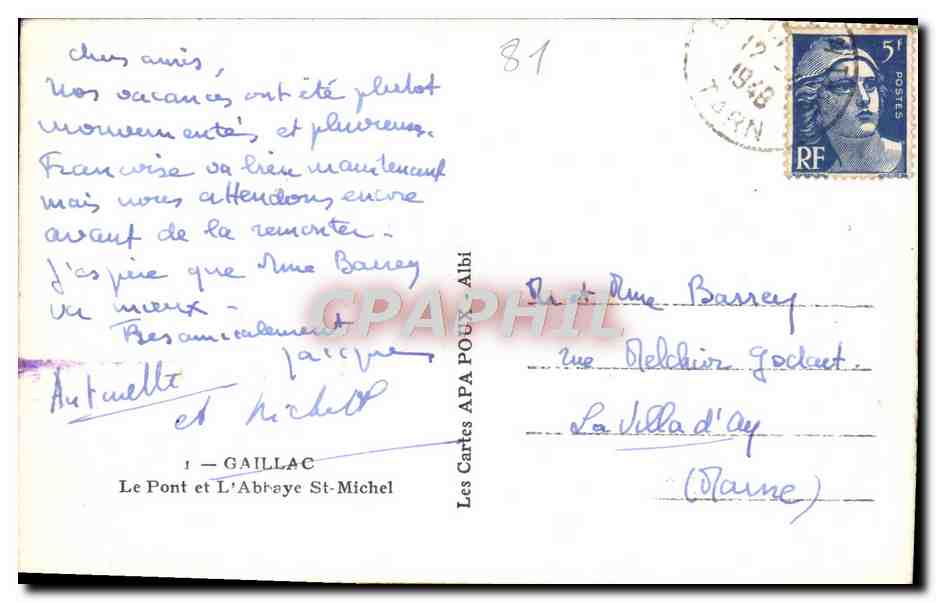 chers amis,
Nos vacances ont été plutot
mouvementés et pluvieuses.
Françoise va bien maintenant
mais nous attendons encore
avant de la remonter -
J'espère que Mme Barrey
va mieux -
Bes amicalement
Jacques
Antoinette
et Michel
1 — GAILLAC
Le Pont et L'Abbaye St-Michel
Les Cartes APA POUX - Albi
CPAPHIL
81
12
1948
TARN
5f
POSTES
RF
Mr et Mme Barrey
rue Melchior Godart.
La Villa d'Ay
(Marne)